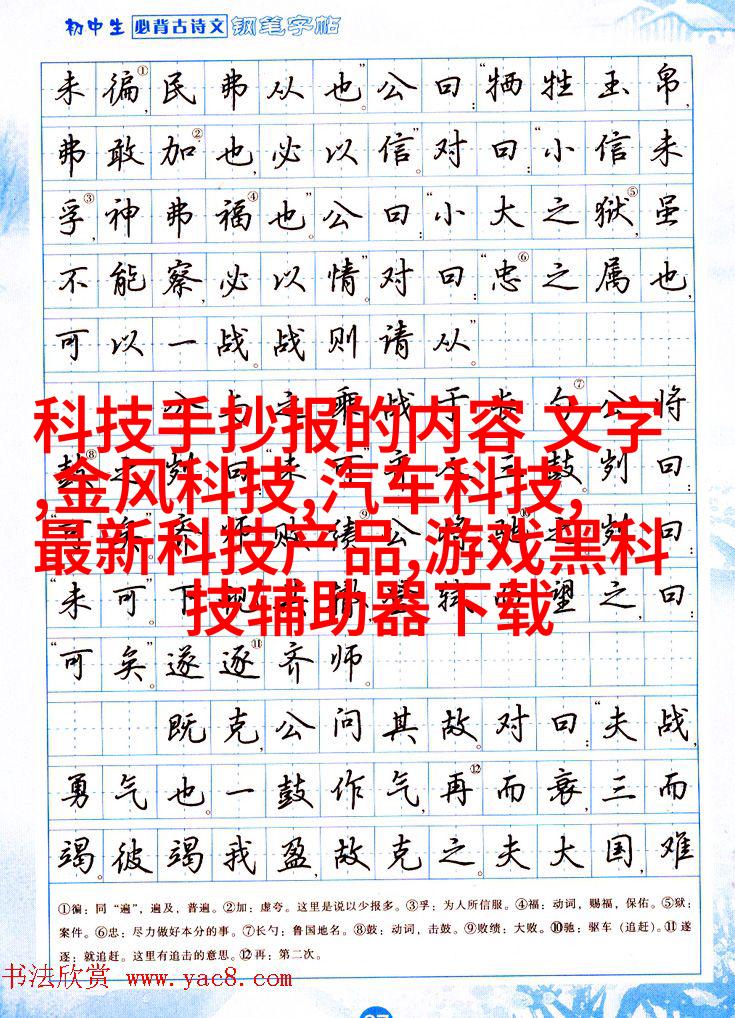 初中生 必背古诗文 钢笔字帖
未徧①,民弗从也。”公曰:“牺牲玉帛,
弗敢加②也,必以信。”对曰:“小信未
孚③,神弗福④也。”公曰:“小大之狱⑤,虽
不能察,必以情。”对曰:“忠⑥之属也,
可以一战。战则请从。”
公与之乘战于长勺⑦公将
鼓⑧之刿曰“未可”齐人三鼓刿曰:
“可矣”齐师败绩⑨公将驰⑩之刿曰:
“未可”。下视其辙登轼而望之,曰:
“可矣。”遂逐⑪齐师。
既克,公问其故。对曰:“夫战,
勇气也。一鼓作气,再⑫而衰,三而
竭。彼竭我盈,故克之。夫大国,难
科技手抄报的内容 文字
,金风科技,汽车科技,
最新科技产品,游戏黑科
技辅助器下载
①徧:同“遍”,遍及,普遍。②加:虚夸。这里是说以少报多。③孚:为人所信服。④福:动词,赐福,保佑。⑤狱:
案件。⑥忠:尽力做好本分的事。⑦长勺:鲁国地名。⑧鼓:动词,击鼓。⑨败绩:大败。⑩驰:驱车(追赶)。⑪遂
逐:就追赶。这里有追击的意思。⑫再:第二次。
书法欣赏 www.yac8.com